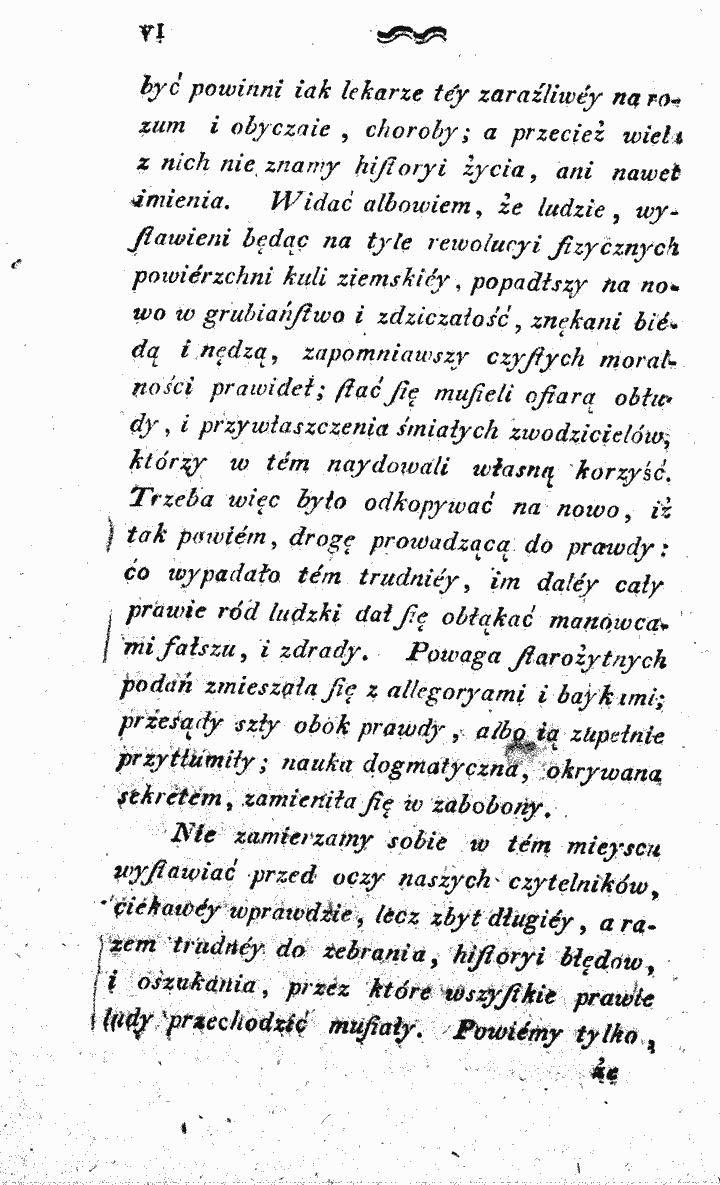 VI
być powinni iak lekarze téy zaraźliwéy na ro-
zum i obyczaie , choroby; a przecież wielu
z nich nie znamy hiſtoryi życia, ani nawet
imienia. Widać albowiem, że ludzie, wy-
ſtawieni będąc na tyle rewolucyi fizycznych
powiérzchni kuli ziemskiéy, popadłszy na no-
wo w grubiańſtwo i zdziczałość, znękani bié-
dą i nędzą, zapomniawszy czyſtych moral-
ności prawideł; ſtać ſię muſieli ofiarą obłu-
dy, i przywłaszczenia śmiałych zwodzicielów,
którzy w tém naydowali własną korzyść.
Trzeba więc było odkopywać na nowo, iż
tak powiém, drogę prowadzącą do prawdy:
co wypadało tém trudniéy, im daléy cały
prawie ród ludzki dał ſię obłąkać manowca-
mi fałszu, i zdrady. Powaga ſtarożytnych
podań zmieszała ſię z allegoryami i baykami;
przesądy szły obok prawdy, albo ią zupełnie
przytłumiły; nauka dogmatyczna, okrywana
sekretem, zamieniła ſię w zabobony.
Nie zamierzamy sobie w tém mieyscu
wyſtawiać przed oczy naszych czytelników,
ciekawéy wprawdzie, lecz zbyt długiéy, a ra-
zem trudnéy do zebrania, hiſtoryi błędow,
i oszukania, przez które wszyſtkie prawie
ludy przechodzić muſiały. Powiémy tylko,
że